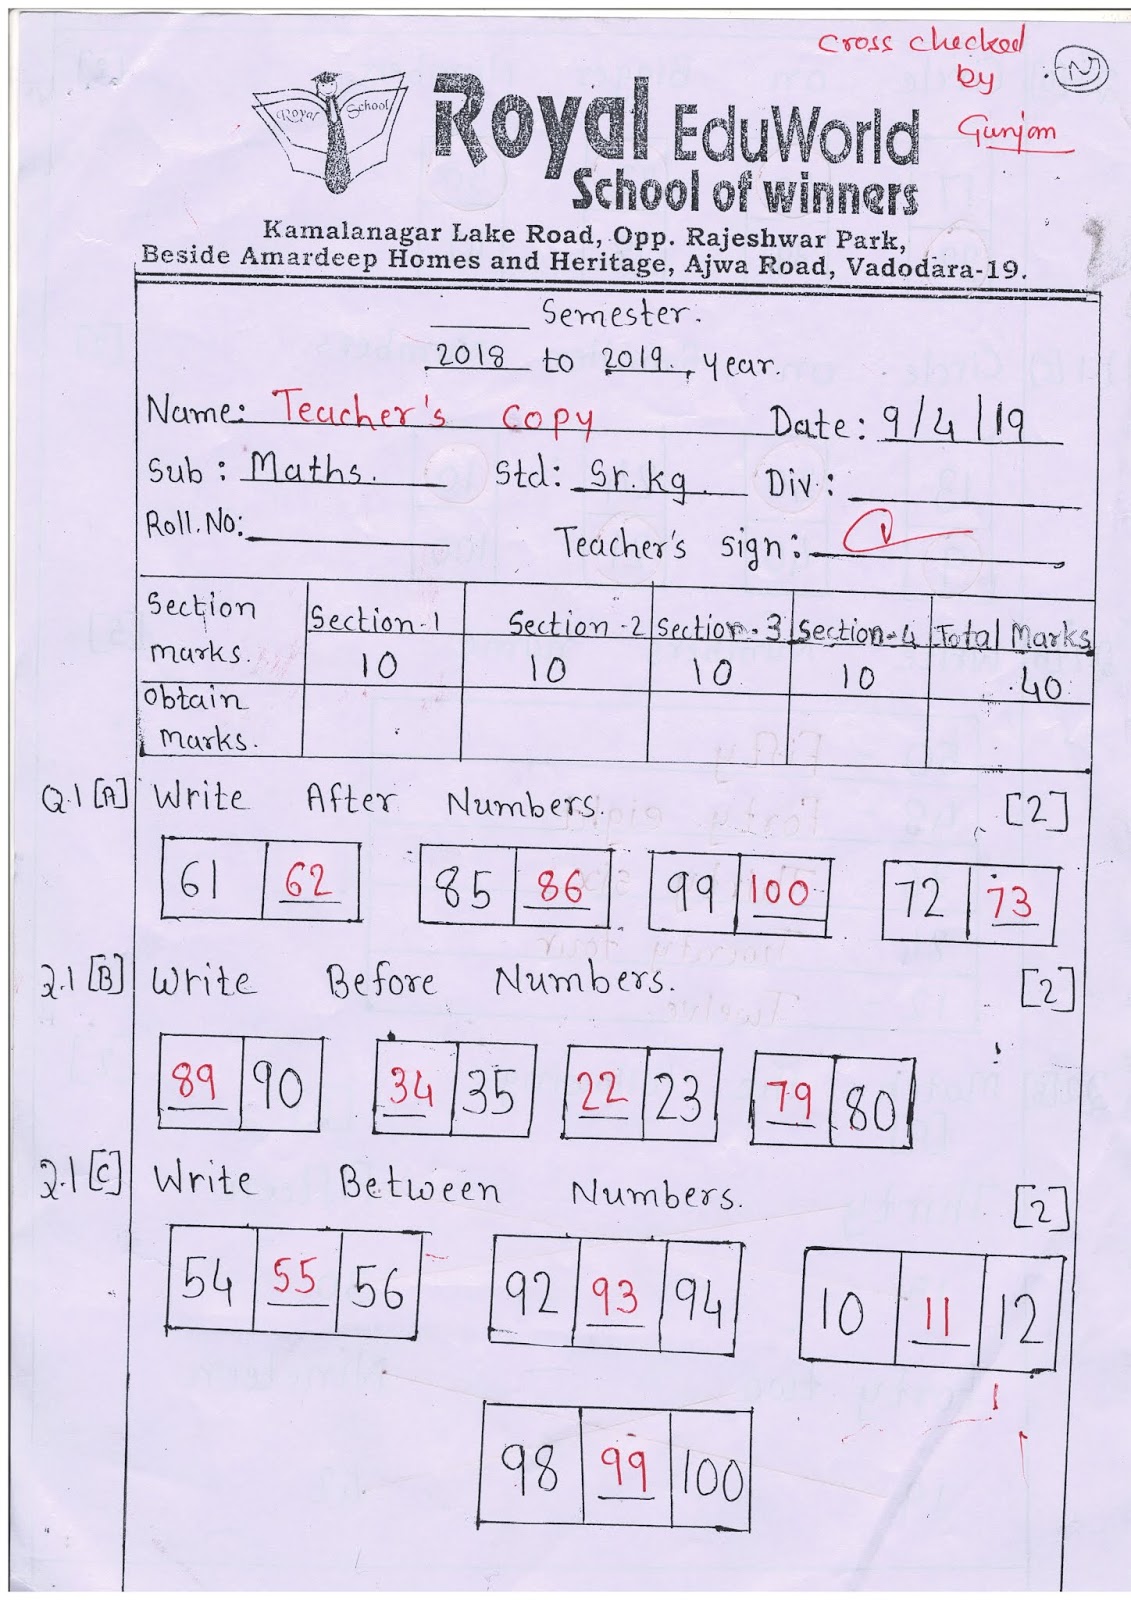 cross checked
by
Gunjan
N
Royal School
Royal EduWorld
School of winners
Kamalanagar Lake Road, Opp. Rajeshwar Park,
Beside Amardeep Homes and Heritage, Ajwa Road, Vadodara-19.
____ Semester.
2018 to 2019. year.
Name: Teacher's copy Date: 9/4/19
Sub: Maths. Std: Sr.kg. Div:
Roll.No: Teacher's sign:
Section marks. Section-1 Section-2 Section-3 Section-4 Total Marks
10 10 10 10 40
Obtain marks.
Q.1 [A] Write After Numbers. [2]
61 62 85 86 99 100 72 73
Q.1 [B] Write Before Numbers. [2]
89 90 34 35 22 23 79 80
Q.1 [C] Write Between Numbers. [2]
54 55 56 92 93 94 10 11 12
98 99 100